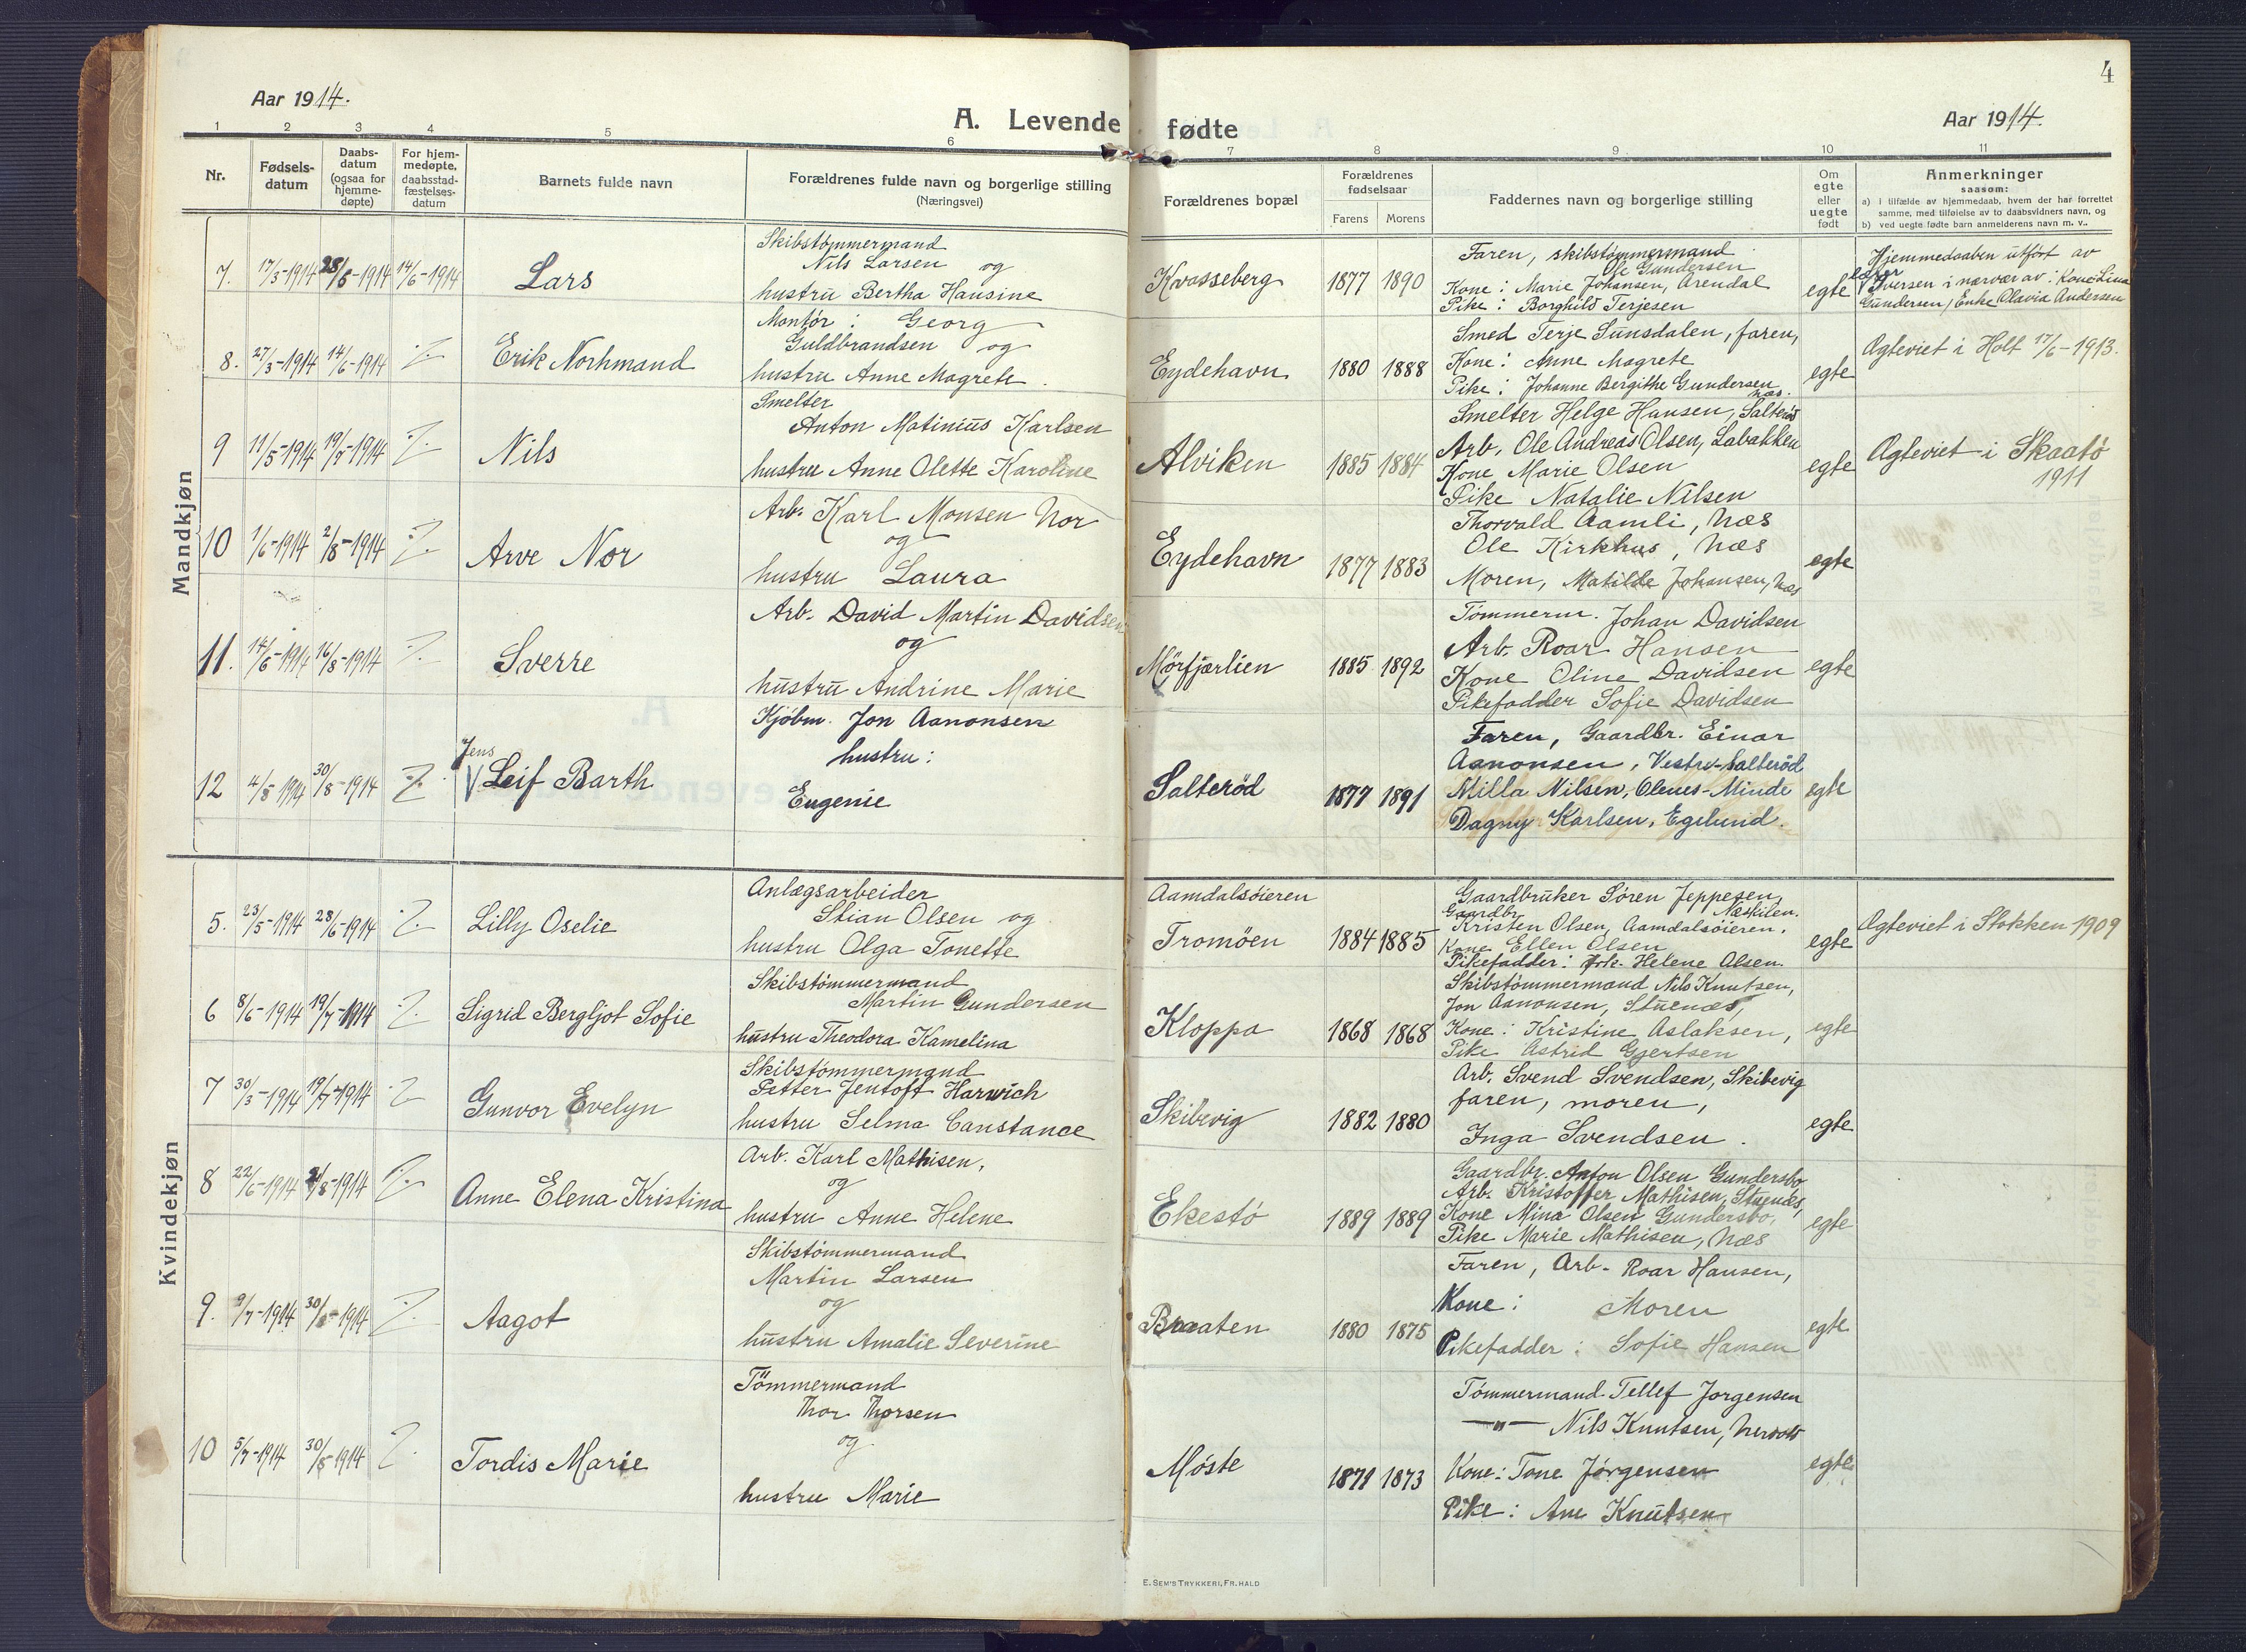 4
Aar 1914.
Aar 1914.
A. Levende fødte
1 2 3 4 5 6 7 8 9 10 11
Nr.
Fødsels-
datum
Daabs-
datum
(ogsaa for
hjemme-
døpte)
For hjem-
medøpte,
daabsstad-
fæstelses-
datum
Barnets fulde navn
Forældrenes fulde navn og borgerlige stilling
(Næringsvei)
Forældrenes bopæl
Forældrenes
fødselsaar
Farens Morens
Faddernes navn og borgerlige stilling
Om
egte
eller
uegte
født
Anmerkninger
saasom:
a) I tilfælde av hjemmedaab, hvem der har forrettet
samme, med tilføielse av to daabsvidners navn, og
b) ved uegte fødte barn anmelderens navn m. v..
Mandkjøn
7. 17/3-1914 28/5-1914 14/6-1914
Lars
Skibstømmermand
Nils Larsen og
hustru Bertha Hansine
Kvasseberg
1877 1890
Faren, skibstømmermand
Ole Gundersen
Kone: Marie Johansen, Arendal
Pike: Borghild Terjesen
egte
Hjemmedaaben utført av
lærer
Iversen i nærvær av: Kone Lina
Gundersen, Enke Olavia Andersen
8. 27/3-1914 14/6-1914 ./.
Erik Northmand
Montør: Georg
Guldbrandsen og
hustru Anne Magrete.
Eydehavn
1880 1888
Smed Terje Sunsdalen, faren,
Kone: Anne Magrete
Pike: Johanne Bergithe Gundersen
Næs.
egte
Ægteviet i Holt 17/6-1913.
9 11/5-1914 19/7-1914 ./.
Nils
Smelter
Anton Matinius Karlsen
hustru Anne Olette Karoline
Alviken
1885 1884
Smelter Helge Hansen, Salterød
Arb. Ole Andreas Olsen, Labakken
Kone Marie Olsen
Pike Natalie Nilsen
egte
Ægteviet i Skaatø
1911
10 1/6-1914 2/8-1914 ./.
Arve Nor
Arb. Karl Monsen Nor
og
hustru Laura
Eydehavn
1877 1883
Thorvald Aamli, Næs
Ole Kirkhus, Næs
Moren, Matilde Johansen, Næs
egte
11. 14/6-1914 16/8-1914 ./.
Sverre
Arb. David Martin Davidsen
og
hustru Andrine Marie
Mørfjærlien
1885 1892
Tømmerm. Johan Davidsen
Arb. Roar Hansen
Kone Oline Davidsen
Pikefadder Sofie Davidsen
egte
12 4/8-1914 30/8-1914 ./.
Jens
Leif Barth
Kjøbm. Jon Aanonsen
hustru:
Eugenie
Salterød
1877 1891
Faren, Gaardbr. Einar
Aanonsen, Vestre-Salterød
Milla Nilsen, Olenes-Minde
Dagny Karlsen, Egelund.
egte
Kvindekjøn
5. 23/5-1914 28/6-1914 ./.
Lilly Oselie
Anlægsarbeider
Stian Olsen og
hustru Olga Tonette
Aamdalsøieren
Tromøen
1884 1885
Gaardbruker Søren Jeppesen,
Næskilen.
Gaardbr.
Kristen Olsen, Aamdalsøieren.
Kone Ellen Olsen
Pikefadder: Frk. Helene Olsen.
egte
Ægteviet i Stokken 1909
6 8/6-1914 19/7-1914 ./.
Sigrid Bergljot Sofie
Skibstømmermand
Martin Gundersen
hustru Theodora Kamelina
Kloppa
1868 1868
Skibstømmermand Nils Knutsen,
Jon Aanonsen, Stuenæs,
Kone: Kristine Aslaksen,
Pike Astrid Gjertsen
egte
7 30/3-1914 19/7-1914 ./.
Gunvor Evelyn
Skibstømmermand
Petter Jentoft Harwich
hustru Selma Constance
Skibevig
1882 1880
Arb. Svend Svendsen, Skibevig
faren, moren,
Inga Svendsen.
egte
8 22/6-1914 2/8-1914 ./.
Anne Elena Kristina
Arb. Karl Mathisen,
og
hustru Anne Helene
Ekestø
1889 1889
Gaardbr. Anton Olsen Gundersbo
Arb. Kristoffer Mathisen, Stuenæs,
Kone Mina Olsen Gundersbo,
Pike Marie Mathisen, Næs
egte
9. 9/7-1914 30/8-1914 ./.
Aagot
Skibstømmermand
Martin Larsen
og
hustru Amalie Severine
Braaten
1880 1875
Faren, Arb. Roar Hansen,
Kone: Moren
Pikefadder: Sofie Hansen
egte
10 5/7-1914 30/8-1914 ./.
Tordis Marie
Tømmermand
Thor Thorsen
og
hustru Marie
Møste
1871 1873
Tømmermand Tellef Jorgensen
—"— Nils Knutsen,
Kone: Tone Jørgensen
Pike: Ane Knutsen
egte
E. SEM'S TRYKKERI, FR.HALD